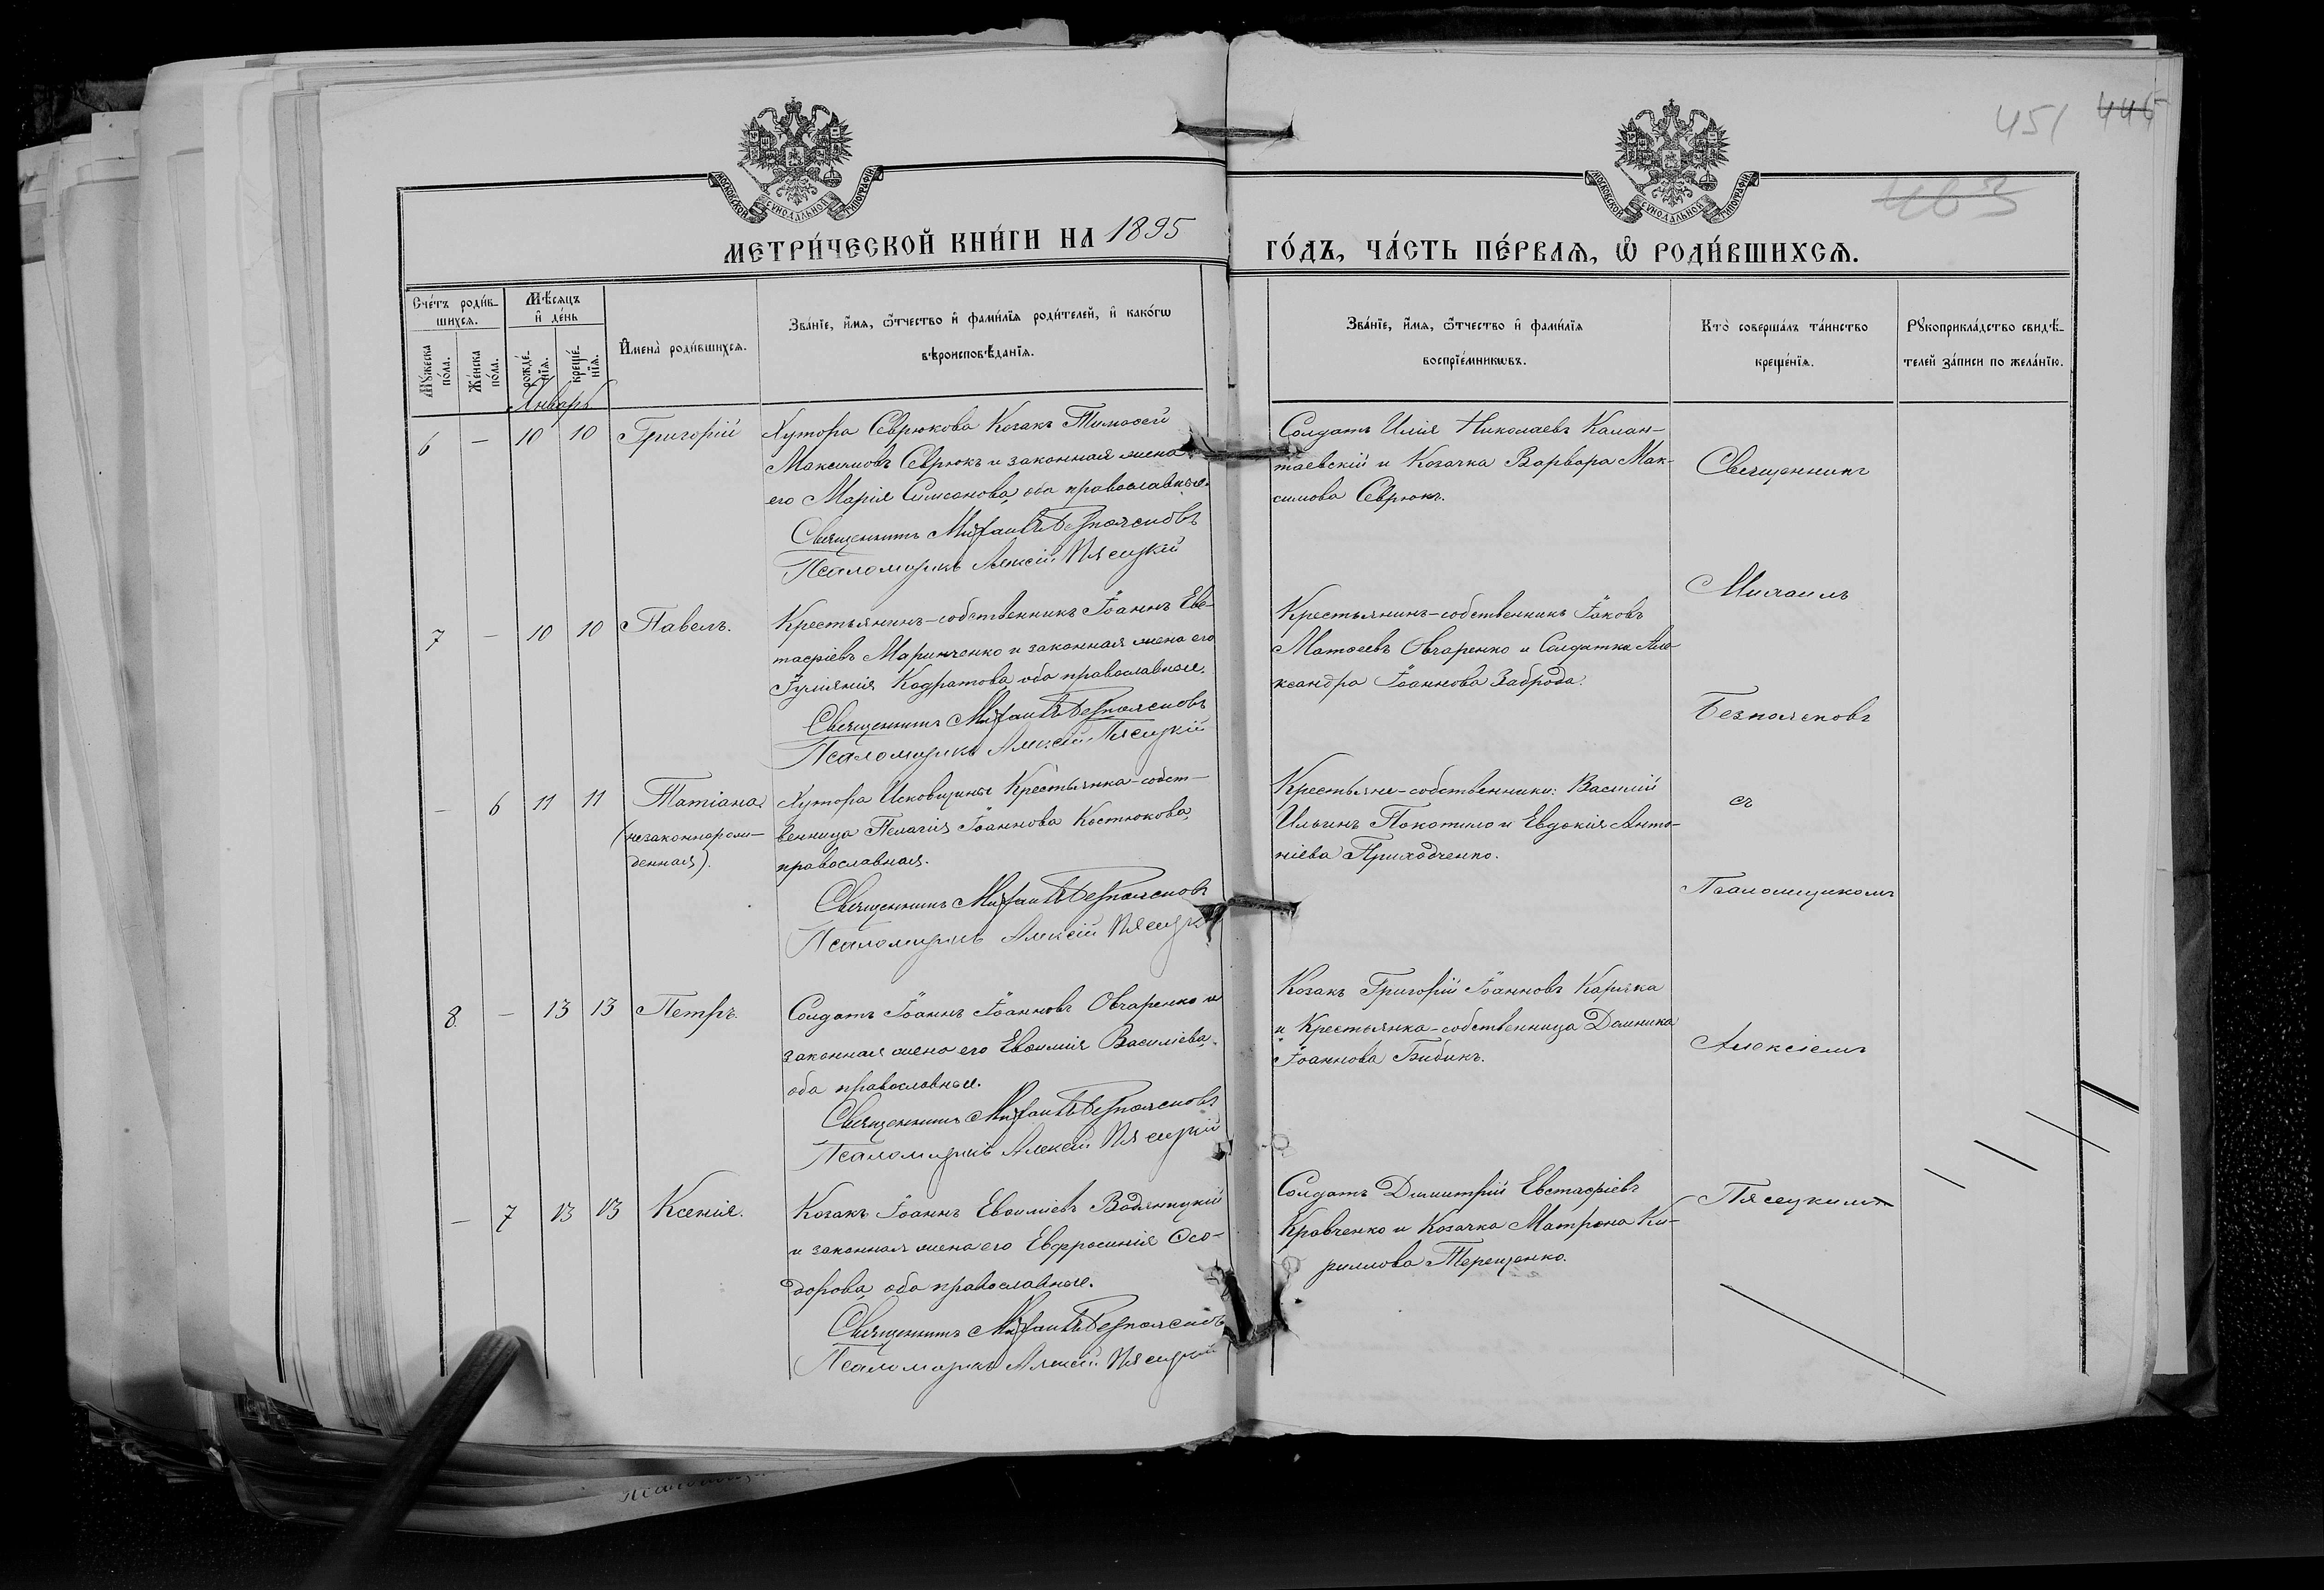 451 446
463
МОСКОВСКОЙ СѴНОДАЛЬНОЙ ТИПОГРАФІИ
МОСКОВСКОЙ СѴНОДАЛЬНОЙ ТИПОГРАФІИ
МЕТРИ́ЧЕСКОЙ КНИ́ГИ НА 1895 ГО́ДЪ, ЧА́СТЬ ПЕ́РВАѦ, Ѡ҆ РОДИ́ВШИХСѦ.
Сче́тъ роди́в-
шихсѧ.
Мꙋ́жеска по́ла.
Же́нска по́ла.
Мѣ́сѧцъ
и҆ де́нь
рожде́-нїѧ.
креще́-нїѧ.
И҆мена̀ роди́вшихсѧ.
Зва́нїе, и҆́мѧ, ѻ҆́тчество и҆ фами́лїѧ роди́телей, и҆ како́гѡ
вѣроисповѣ́данїѧ.
Зва́нїе, и҆́мѧ, ѻ҆́тчество и҆ фами́лїѧ
воспрїе́мникѡвъ.
Кто̀ соверша́лъ та́инство
креще́нїѧ.
Рꙋкоприкла́дство свидѣ́-
телей за́писи по жела́нїю.
Январь
6 — 10 10 Григорій
Хутора Севрюкова Козакъ Тимоѳей
Максимовъ Севрюкъ и законная жена
его Марія Симеонова, оба православные.
Священникъ Михаилъ Безпоясновъ
Псаломщикъ Алексій Пясецкій
Солдатъ Илія Николаевъ Калан-
таевскій и Козачка Варвара Мак-
симова Севрюкъ.
7 — 10 10 Павелъ.
Крестьянинъ-собственникъ Іоаннъ Евс-
тафіевъ Маринченко и законная жена его
Іуліянія Кодратова, оба православные.
Священникъ Михаилъ Безпоясновъ
Псаломщикъ Алексій Пясецкій
Крестьянинъ-собственникъ Іаковъ
Матѳеевъ Овчаренко и Солдатка Але-
ксандра Іоаннова Заброда.
— 6 11 11 Татіана
(незаконнорож-
денная).
Хутора Исковщины Крестьянка-собст-
венница Пелагія Іоаннова Костюкова,
православная.
Священникъ Михаилъ Безпоясновъ
Псаломщикъ Алексій Пясецк
Крестьяне-собственники: Василій
Ильинъ Покотило и Евдокія Анто-
ніева Приходченко.
8 — 13 13 Петръ.
Солдатъ Іоаннъ Іоанновъ Овчаренко и
законная жена его Евѳимія Василіева,
оба православные.
Священникъ Михаилъ Безпоясновъ
Псаломщикъ Алексій Пясецкій
Козакъ Григорій Іоанновъ Карячка
и Крестьянка-собственница Домника
Іоаннова Бибикъ.
— 7 13 13 Ксенія.
Козакъ Іоаннъ Евѳиміевъ Водяницкій
и законная жена его Евфросинія Ѳео-
дорова, оба православные.
Священникъ Михаилъ Безпоясновъ
Псаломщикъ Алексій Пясецкій
Солдатъ Димитрій Евстафіевъ
Кравченко и Козачка Матрона Ки-
риллова Терещенко.
Священникъ
Михаилъ
Безпоясновъ
съ
Псаломщикомъ
Алексіемъ
Пясецкимъ